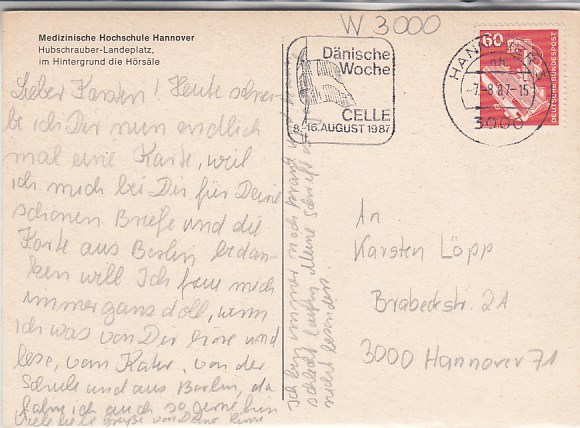 W 3000
Medizinische Hochschule Hannover
Hubschrauber-Landeplatz,
im Hintergrund die Hörsäle
Dänische
Woche
CELLE
8.-16. AUGUST 1987
HANNOVER 3
-7.-8.87-15
3000
60
DEUTSCHE BUNDESPOST
Lieber Karsten! Heute schrei-
be ich Dir nun endlich
mal eine Karte, weil
ich mich bei Dir für Deine
schönen Briefe und die
Karte aus Berlin bedan-
ken will. Ich freue mich
immer ganz doll, wenn
ich was von Dir höre und
lese, vom Kater, von der
Schule und aus Berlin, da
fahre ich auch so gerne hin
Viele liebe Grüße von Deiner
Ich immer noch
schlecht laufen. Meine
nicht besonders.
An
Karsten Löpp
Brabeckstr. 2A
3000 Hannover 71